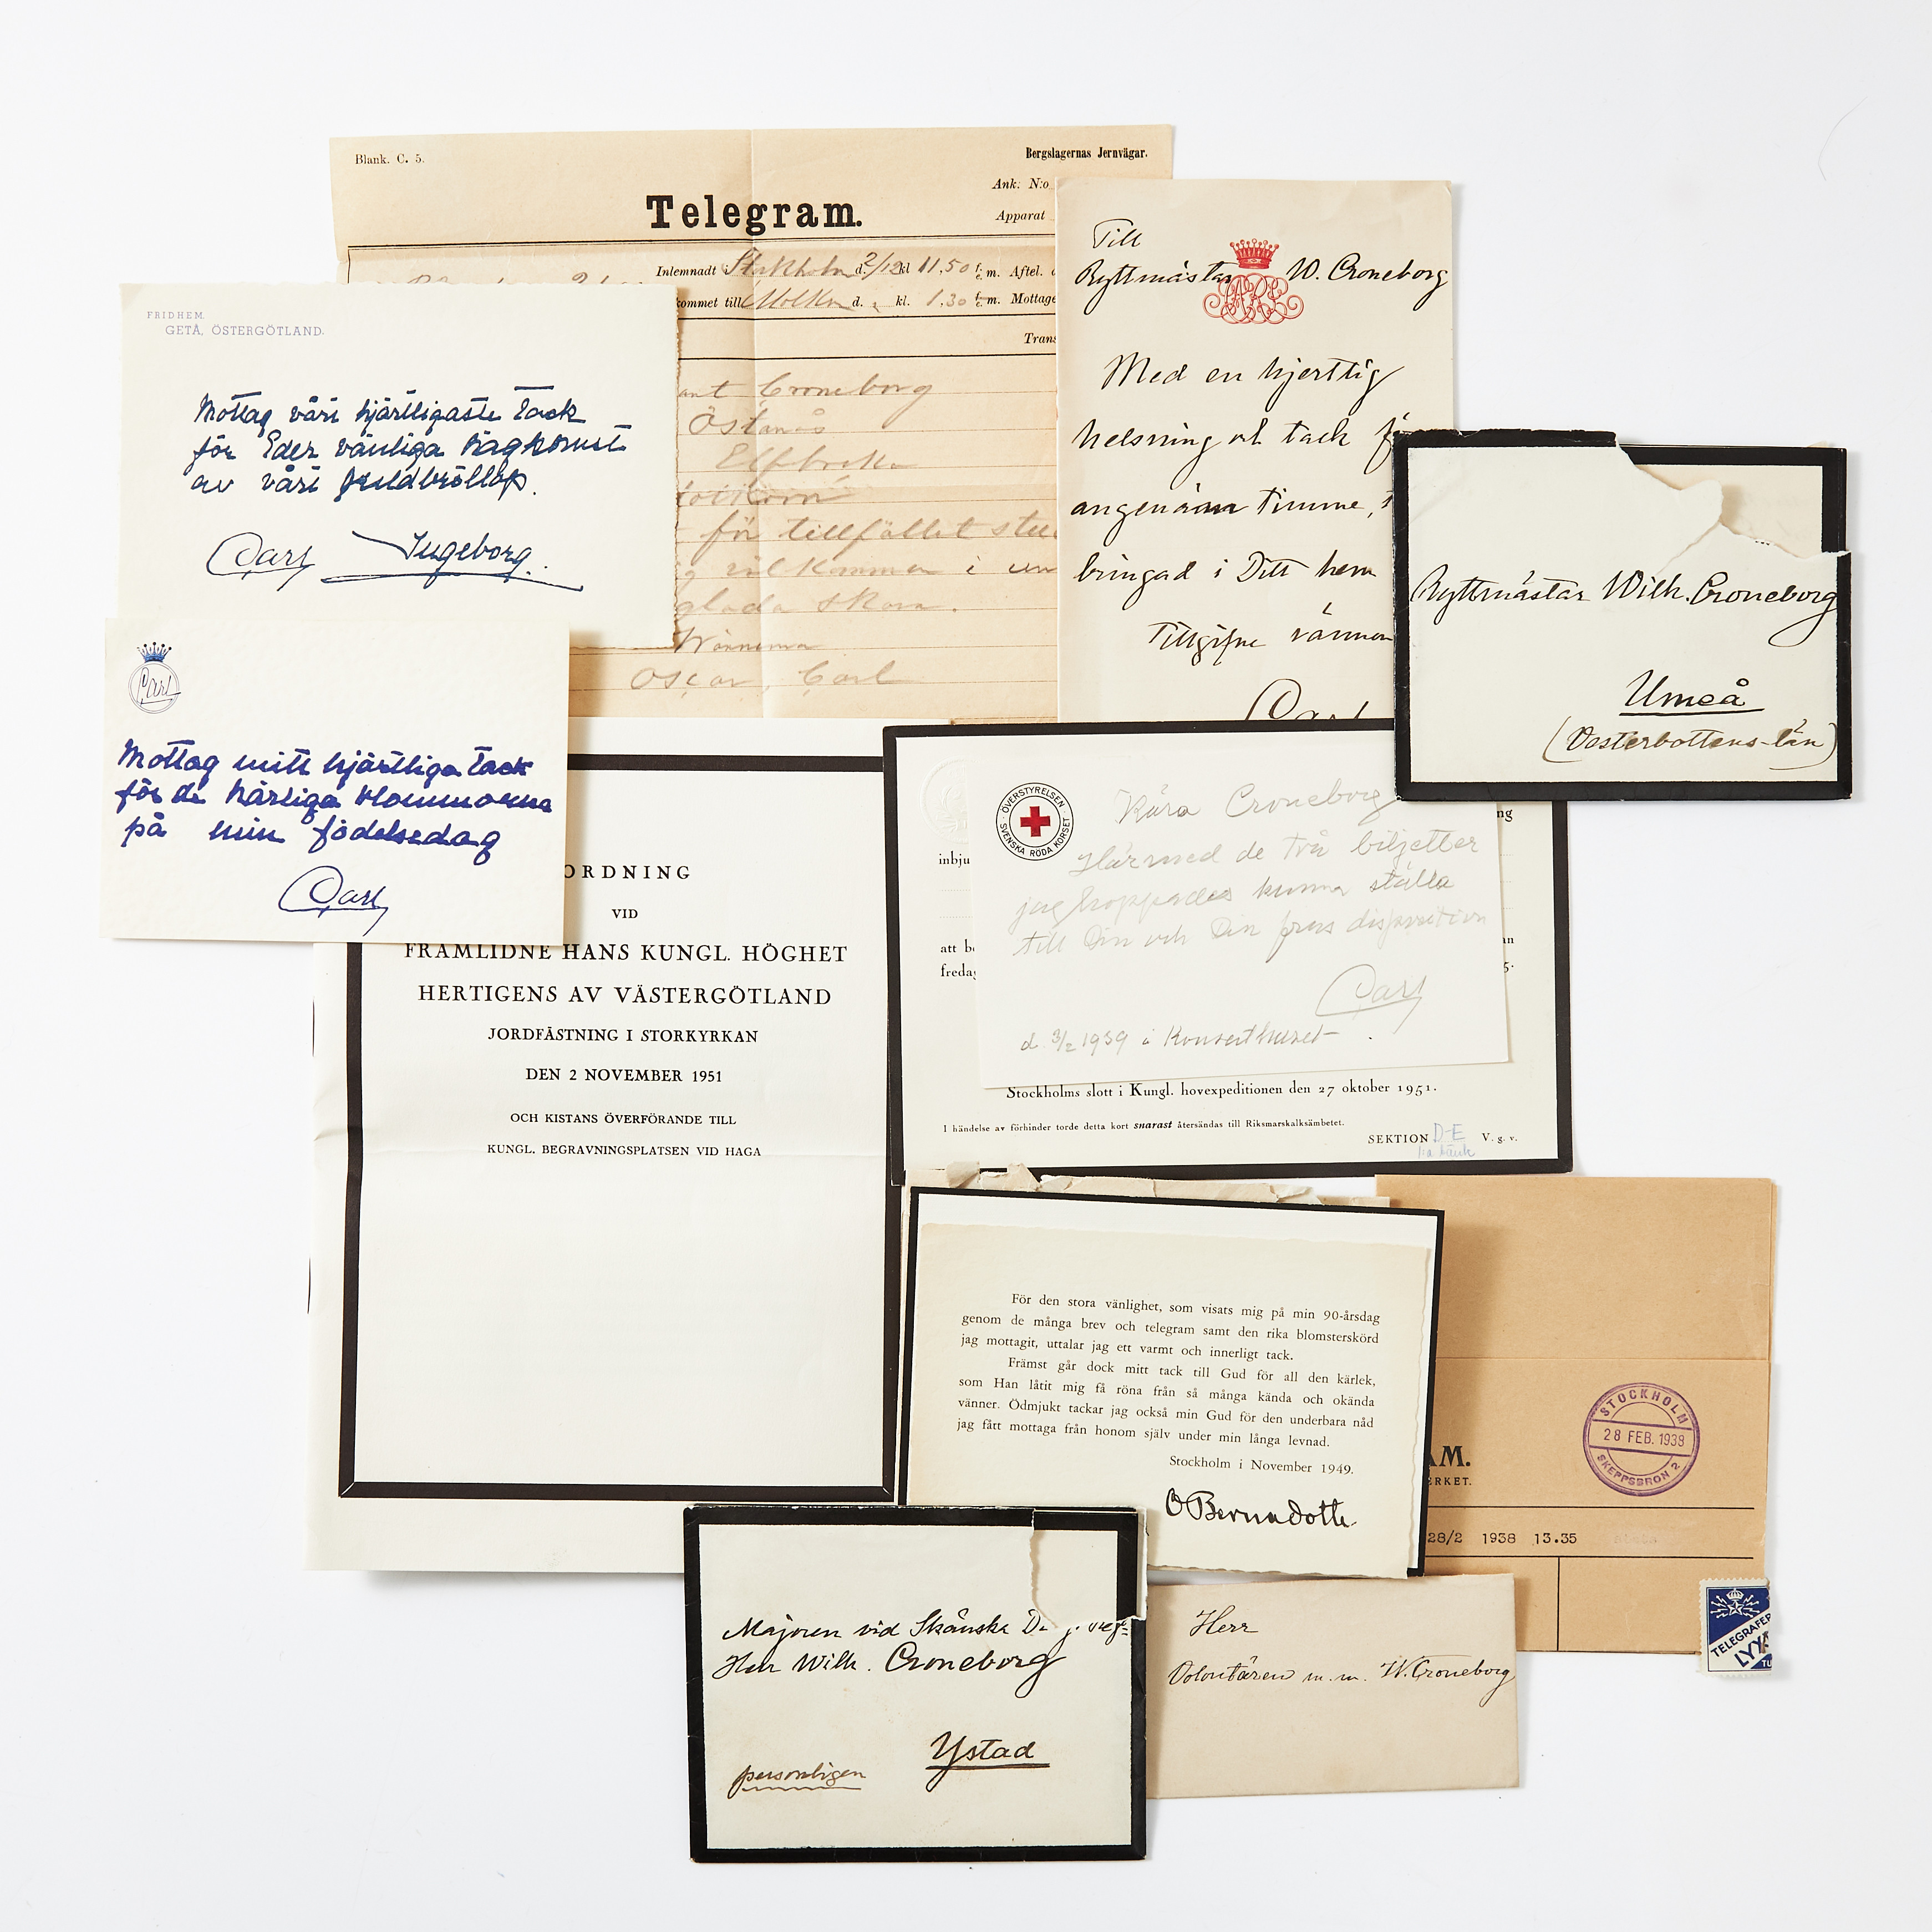 Blank. C. 5.
Bergslagernas Jernvägar.
Ank. N:o
Telegram.
Apparat
Inlemnadt i Stockholm d. 2/12 kl 11,50 f. e. m. Aftel.
kommet till Molkom d. kl. 1,30 f. e. m. Mottage
Trans
ant Croneborg
Östanås
för tillfället
välkommen i
glada
Oscar, Carl
Till
Ryttmästar W. Croneborg
Med en hjerttlig
helsning och tack
angenäm timme,
bringad i Ditt hem
Tillgifne vännen
Carl
FRIDHEM.
GETÅ, ÖSTERGÖTLAND.
Mottag vårt hjärtligaste tack
för Eder vänliga hågkomst
av vårt guldbröllop.
Carl Ingeborg.
Carl
Mottag mitt hjärtliga tack
för de härliga blommorna
på min födelsedag
Carl
Ryttmästar Wilh. Croneborg
Umeå
(Vesterbottens-län)
ORDNING
VID
FRAMLIDNE HANS KUNGL. HÖGHET
HERTIGENS AV VÄSTERGÖTLAND
JORDFÄSTNING I STORKYRKAN
DEN 2 NOVEMBER 1951
OCH KISTANS ÖVERFÖRANDE TILL
KUNGL. BEGRAVNINGSPLATSEN VID HAGA
ng
inbju
att be
fredag
an
5.
ÖVERSTYRELSEN
SVENSKA RÖDA KORSET
Kära Croneborg
Härmed de två biljetter
jag hoppades kunna ställa
till Din och Din frus disposition
Carl
d. 3/2 1939 i Konserthuset
Stockholms slott i Kungl. hovexpeditionen den 27 oktober 1951.
I händelse av förhinder torde detta kort snarast återsändas till Riksmarskalksämbetet.
SEKTION D-E V. g. v.
För den stora vänlighet, som visats mig på min 90-årsdag
genom de många brev och telegram samt den rika blomsterskörd
jag mottagit, uttalar jag ett varmt och innerligt tack.
Främst går dock mitt tack till Gud för all den kärlek,
som Han låtit mig få röna från så många kända och okända
vänner. Ödmjukt tackar jag också min Gud för den underbara nåd
jag fått mottaga från honom själv under min långa levnad.
Stockholm i November 1949.
O Bernadotte.
STOCKHOLM
28 FEB. 1938
SKEPPSBRON 2
AM.
ERKET.
28/2 1938 13.35
TELEGRAFER
LYX
TE
Majoren vid Skånska
Herr Wilh. Croneborg
Ystad
personligen
Herr
Volontären m. m. W. Croneborg